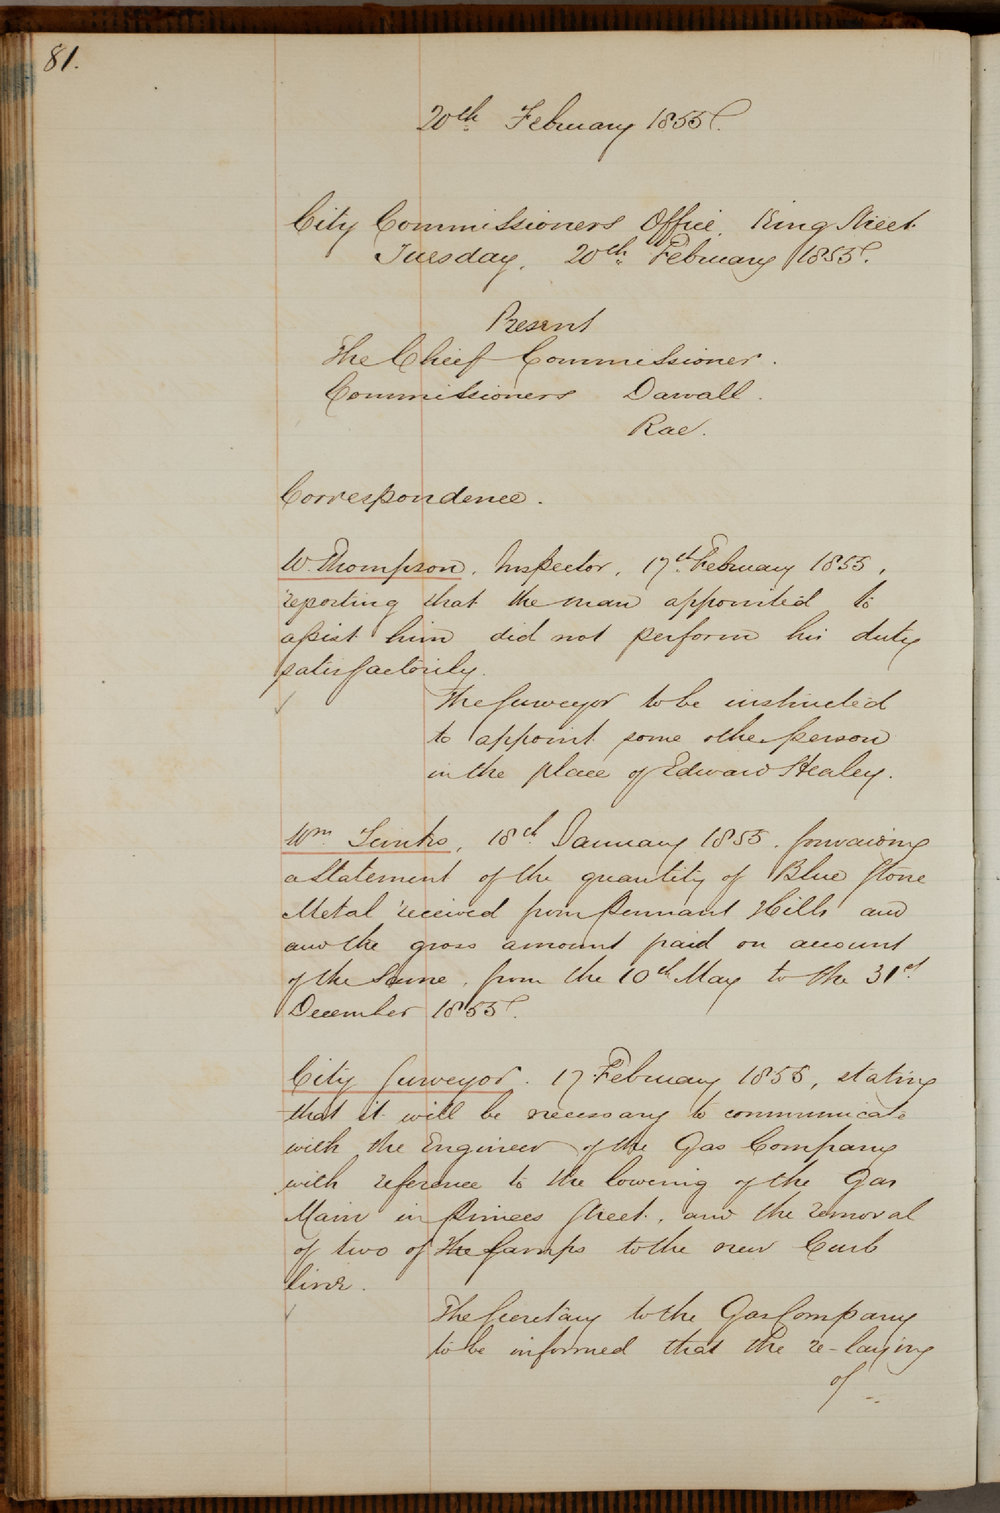 81.
20th February 1855.
City Commissioners Office, King Street
Tuesday, 20th February 1855.
Present
The Chief Commissioner.
Commissioners Darvall.
Rae.
Correspondence.
W. Thompson, Inspector, 17th February 1855,
reporting that the man appointed to
assist him did not perform his duty
satisfactorily.
The Surveyor to be instructed
to appoint some other person
in the place of Edward Healey.
Wm, 18th January 1855. forwarding
a Statement of the quantity of Blue Stone
Metal received from Pennant Hills and
and the gross amount paid on account
of the Same, from the 10th May to the 31st
December 1853.
City Surveyor. 17 February 1855, stating
that it will be necessary to communicate
with the Engineer of the Gas Company
with reference to the lowering of the Gas
Main in Princes Street, and the removal
of two of the Lamps to the new Curb
line.
The Secretary to the Gas Company
to be informed that the re-laying
of